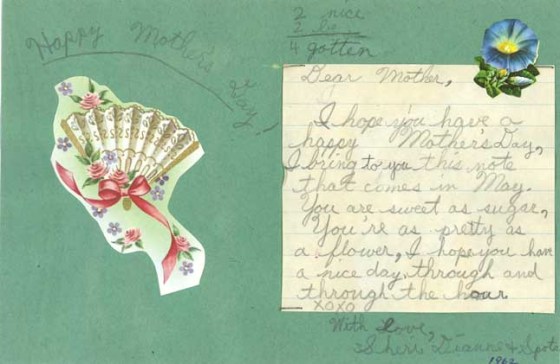 Happy Mother's Day!
2 nice
2 be
4 gotten
Dear Mother,
I hope you have a
happy Mother's Day,
I bring to you this note
that comes in May.
You are sweet as sugar,
You're as pretty as
a flower, I hope you have
a nice day, through and
through the hour
XOXO
With Love,
Sherri, Dianne & Spote
1962